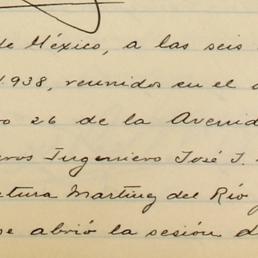 de México, a las seis
1.938, reunidos en el
26 de la Avenid
eros Ingeniero José J.
ctura Martínez del Río
se abrió la sesión d